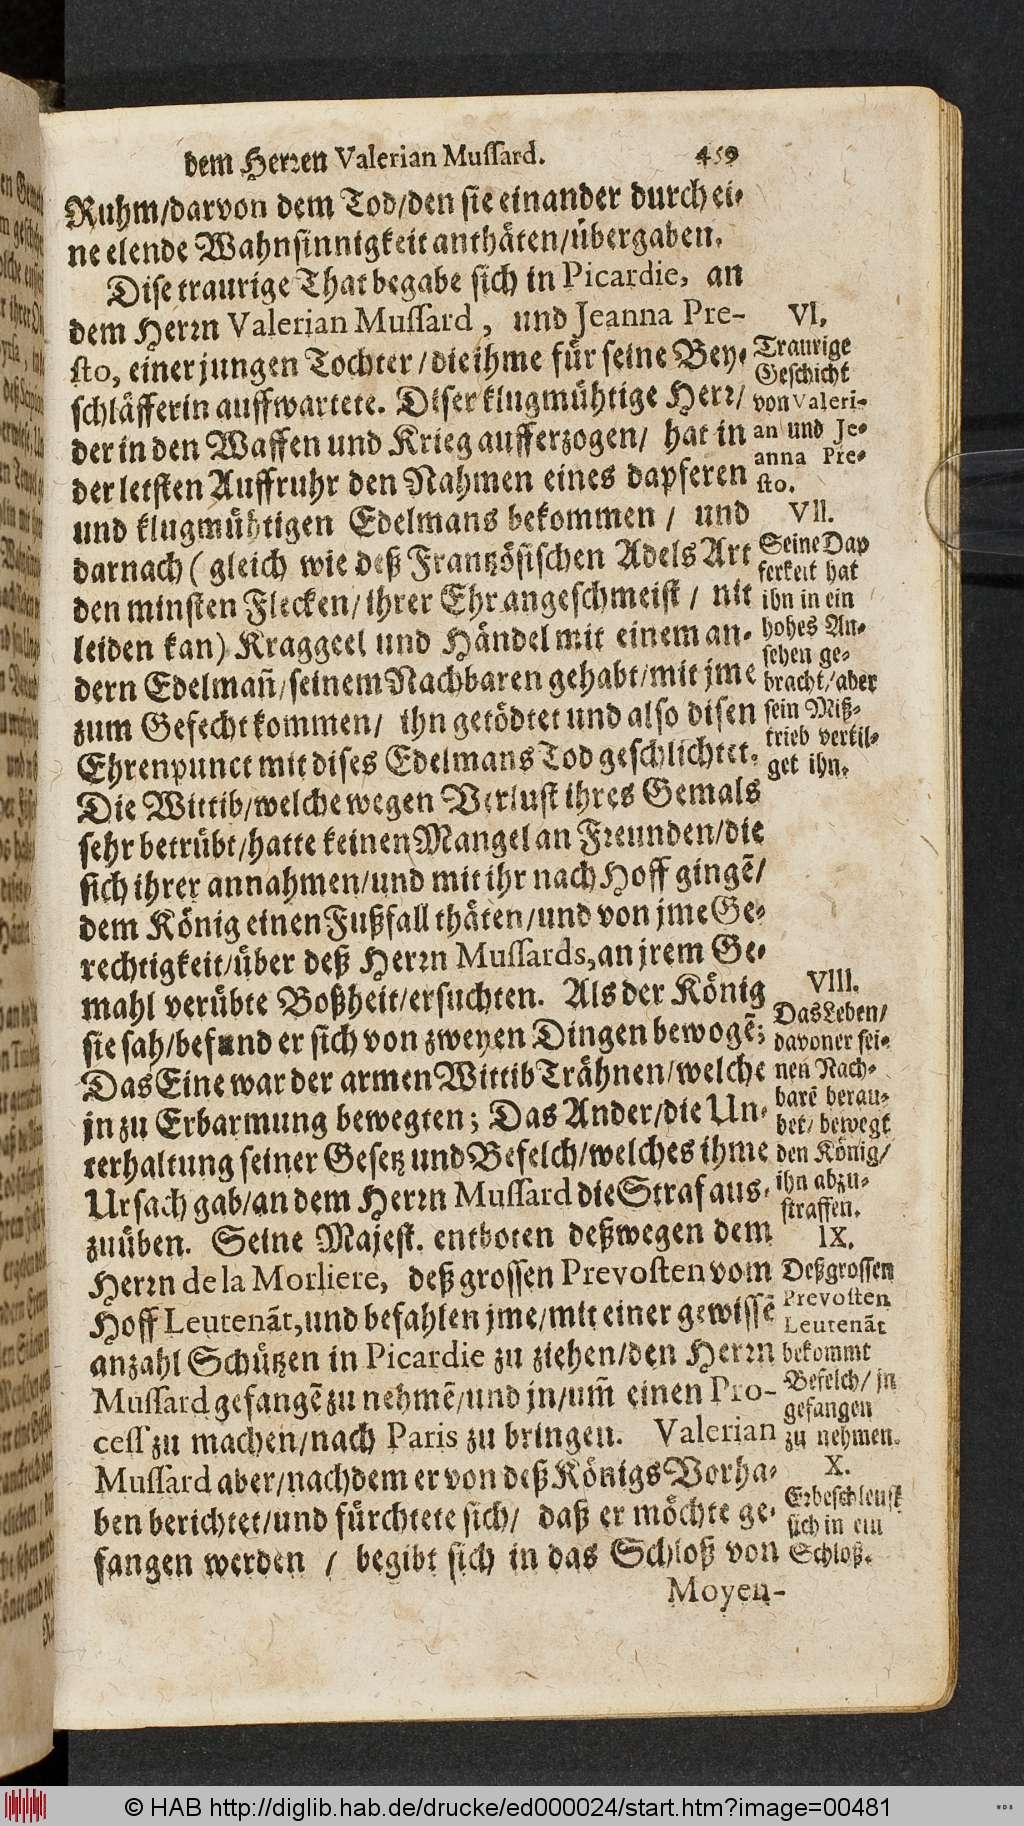 dem Herren Valerian Mussard. 459
Ruhm/darvon dem Tod/den sie einander durch ei-
ne elende Wahnsinnigkeit anthäten/übergaben.
Dise traurige That begabe sich in Picardie, an
dem Herrn Valerian Mussard, und Jeanna Pre-
sto, einer jungen Tochter/die ihme für seine Bey-
schläfferin auffwartete. Diser klugmühtige Herr/
der in den Waffen und Krieg aufferzogen/ hat in
der letsten Auffruhr den Nahmen eines dapferen
und klugmühtigen Edelmans bekommen/ und
darnach (gleich wie deß Frantzösischen Adels Art
den minsten Flecken/ihrer Ehr angeschmeist/ nit
leiden kan) Kraggeel und Händel mit einem an-
dern Edelmañ/seinem Nachbaren gehabt/mit jme
zum Gefecht kommen/ ihn getödtet und also disen
Ehrenpunct mit dises Edelmans Tod geschlichtet.
Die Wittib/welche wegen Verlust ihres Gemals
sehr betrübt/hatte keinen Mangel an Freunden/die
sich ihrer annahmen/und mit ihr nach Hoff gingē/
dem König einen Fußfall thäten/und von jme Ge-
rechtigkeit/über deß Herrn Mussards, an jrem Ge-
mahl verübte Boßheit/ersuchten. Als der König
sie sah/befand er sich von zweyen Dingen bewogē;
Das Eine war der armen Wittib Trähnen/welche
jn zu Erbarmung bewegten; Das Ander/die Un-
terhaltung seiner Gesetz und Befelch/welches ihme
Ursach gab/an dem Herrn Mussard die Straf aus-
zuüben. Seine Majest. entboten deßwegen dem
Herrn de la Morliere, deß grossen Prevosten vom
Hoff Leutenāt, und befahlen jme/mit einer gewissē
anzahl Schützen in Picardie zu ziehen/den Herrn
Mussard gefangē zu nehmē/und jn/um̃ einen Pro-
cess zu machen/nach Paris zu bringen. Valerian
Mussard aber/nachdem er von deß Königs Vorha-
ben berichtet/und fürchtete sich/ daß er möchte ge-
fangen werden / begibt sich in das Schloß von
Moyen-
VI.
Traurige
Geschicht
von Valeri-
an und Je-
anna Pre-
sto.
VII.
Seine Dap
ferkeit hat
ihn in ein
hohes An-
sehen ge-
bracht/aber
sein Miß-
trieb vertil-
get ihn.
VIII.
Das Leben/
davon er sei-
nen Nach-
barē berau-
bet/ bewegt
den König/
ihn abzu-
straffen.
IX.
Deß grossen
Prevosten
Leutenāt
bekommt
Befelch/ jn
gefangen
zu nehmen.
X.
Er beschleust
sich in ein
Schloß.
© HAB http://diglib.hab.de/drucke/ed000024/start.htm?image=00481